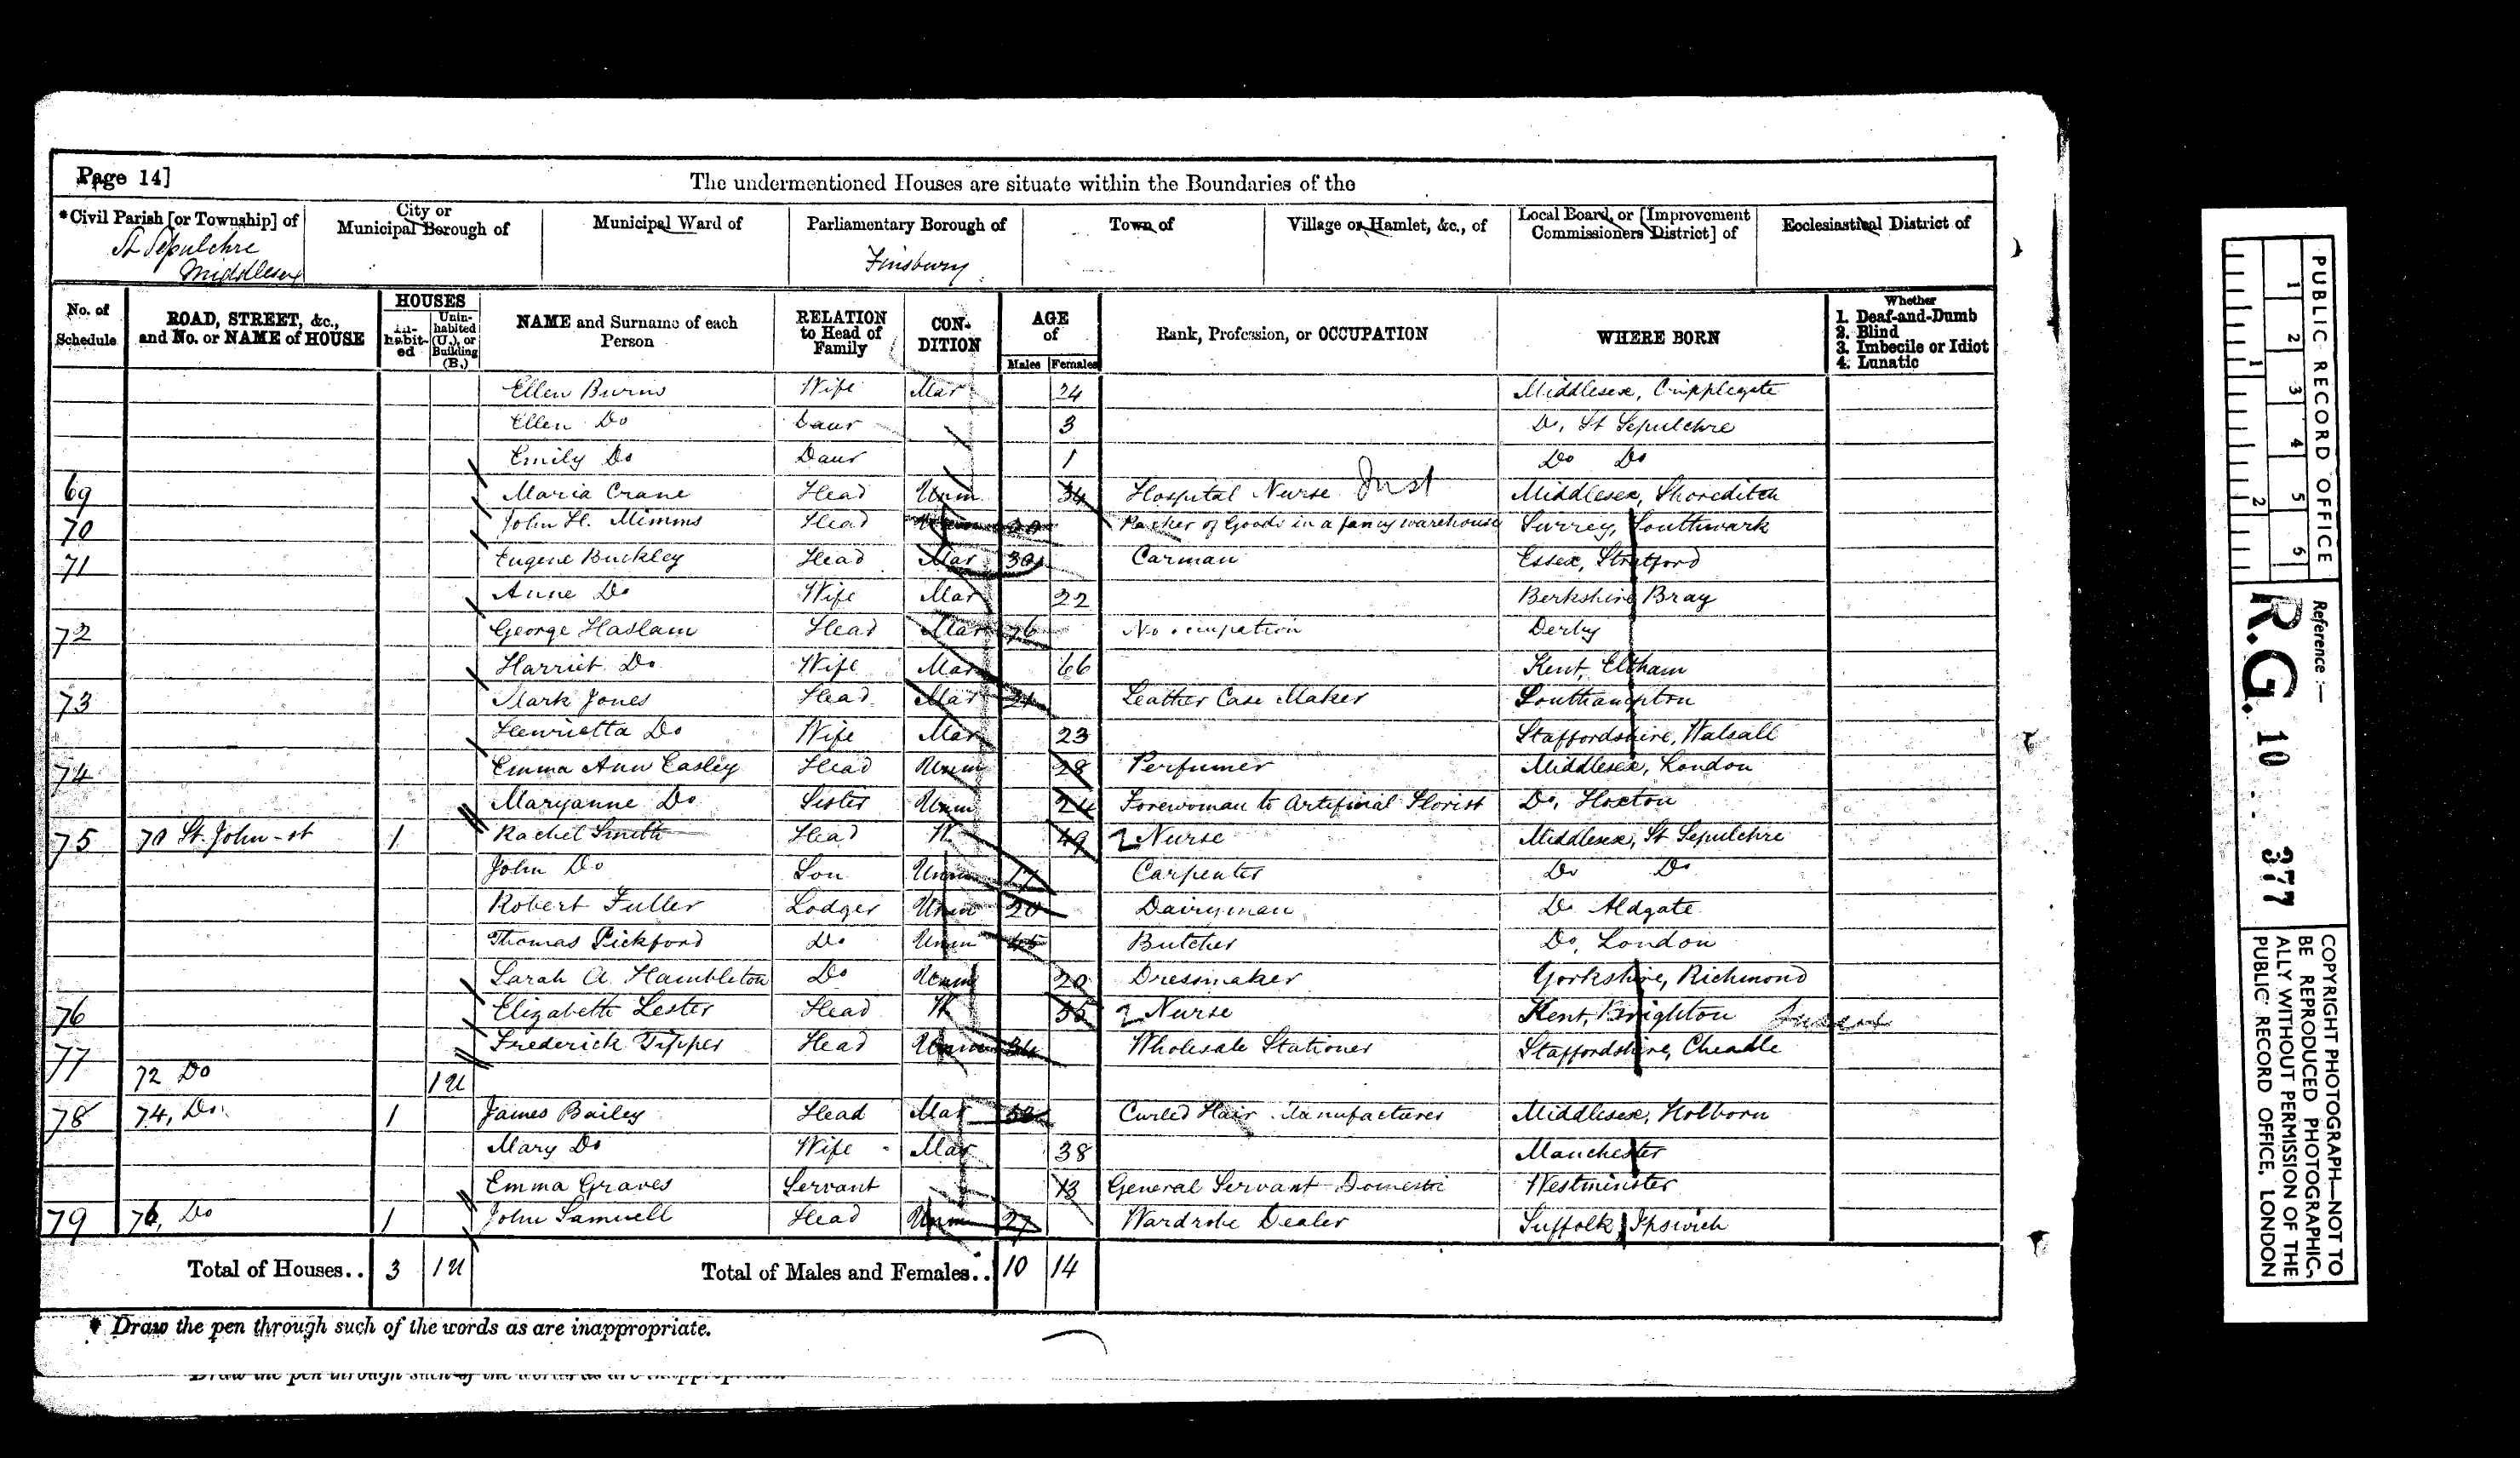 Page 14]
The undermentioned Houses are situate within the Boundaries of the
*Civil Parish [or Township] of
City or Municipal Borough of
Municipal Ward of
Parliamentary Borough of
Town of
Village or Hamlet, &c., of
Local Board, or [Improvement Commissioners District] of
Ecclesiastical District of
St Sepulchre
Middlesex
Finsbury
No. of Schedule
ROAD, STREET, &c., and No. or NAME of HOUSE
HOUSES
In-habit-ed
Unin-habited (U.), or Building (B.)
NAME and Surname of each Person
RELATION to Head of Family
CON-DITION
AGE of
Males Females
Rank, Profession, or OCCUPATION
WHERE BORN
Whether
1. Deaf-and-Dumb
2. Blind
3. Imbecile or Idiot
4. Lunatic
Ellen Burns Wife Mar 24 Middlesex, Cripplegate
Ellen Do Daur 3 Do, St Sepulchre
Emily Do Daur 1 Do Do
69 Maria Crane Head Unm 34 Hospital Nurse Middlesex, Shoreditch
70 John H. Mimms Head Packer of Goods in a fancy warehouse Surrey, Southwark
71 Eugene Buckley Head Mar 30 Carman Essex, Stratford
Anne Do Wife Mar 22 Berkshire Bray
72 George Haslam Head Mar 76 No occupation Derby
Harriet Do Wife Mar 66 Kent, Eltham
73 Mark Jones Head Mar 24 Leather Case Maker Southampton
Henrietta Do Wife Mar 23 Staffordshire, Walsall
74 Emma Ann Easley Head Unm 28 Perfumer Middlesex, London
Maryanne Do Sister Unm 24 Forewoman to Artificial Florist Do, Hoxton
75 70 St. John-st 1 Rachel Smith Head W 49 Nurse Middlesex, St Sepulchre
John Do Son Unm 17 Carpenter Do Do
Robert Fuller Lodger Unm 20 Dairyman Do Aldgate
Thomas Pickford Do Unm 45 Butcher Do, London
Sarah A Hambleton Do Unm 20 Dressmaker Yorkshire, Richmond
76 Elizabeth Lester Head W 35 Nurse Kent, Brighton
77 Frederick Tipper Head Unm 34 Wholesale Stationer Staffordshire, Cheadle
72 Do 1U
78 74, Do. 1 James Bailey Head Mar Curled Hair Manufacturer Middlesex, Holborn
Mary Do Wife Mar 38 Manchester
Emma Graves Servant 13 General Servant Domestic Westminister
79 76, Do 1 John Samuell Head Unm 27 Wardrobe Dealer Suffolk Ipswich
Total of Houses.. 3 1U Total of Males and Females.. 10 14
* Draw the pen through such of the words as are inappropriate.
PUBLIC RECORD OFFICE
1 2 3 4 5 6
1 2
Reference:—
R.G. 10 .. 377
COPYRIGHT PHOTOGRAPH—NOT TO
BE REPRODUCED PHOTOGRAPHIC-
ALLY WITHOUT PERMISSION OF THE
PUBLIC RECORD OFFICE, LONDON